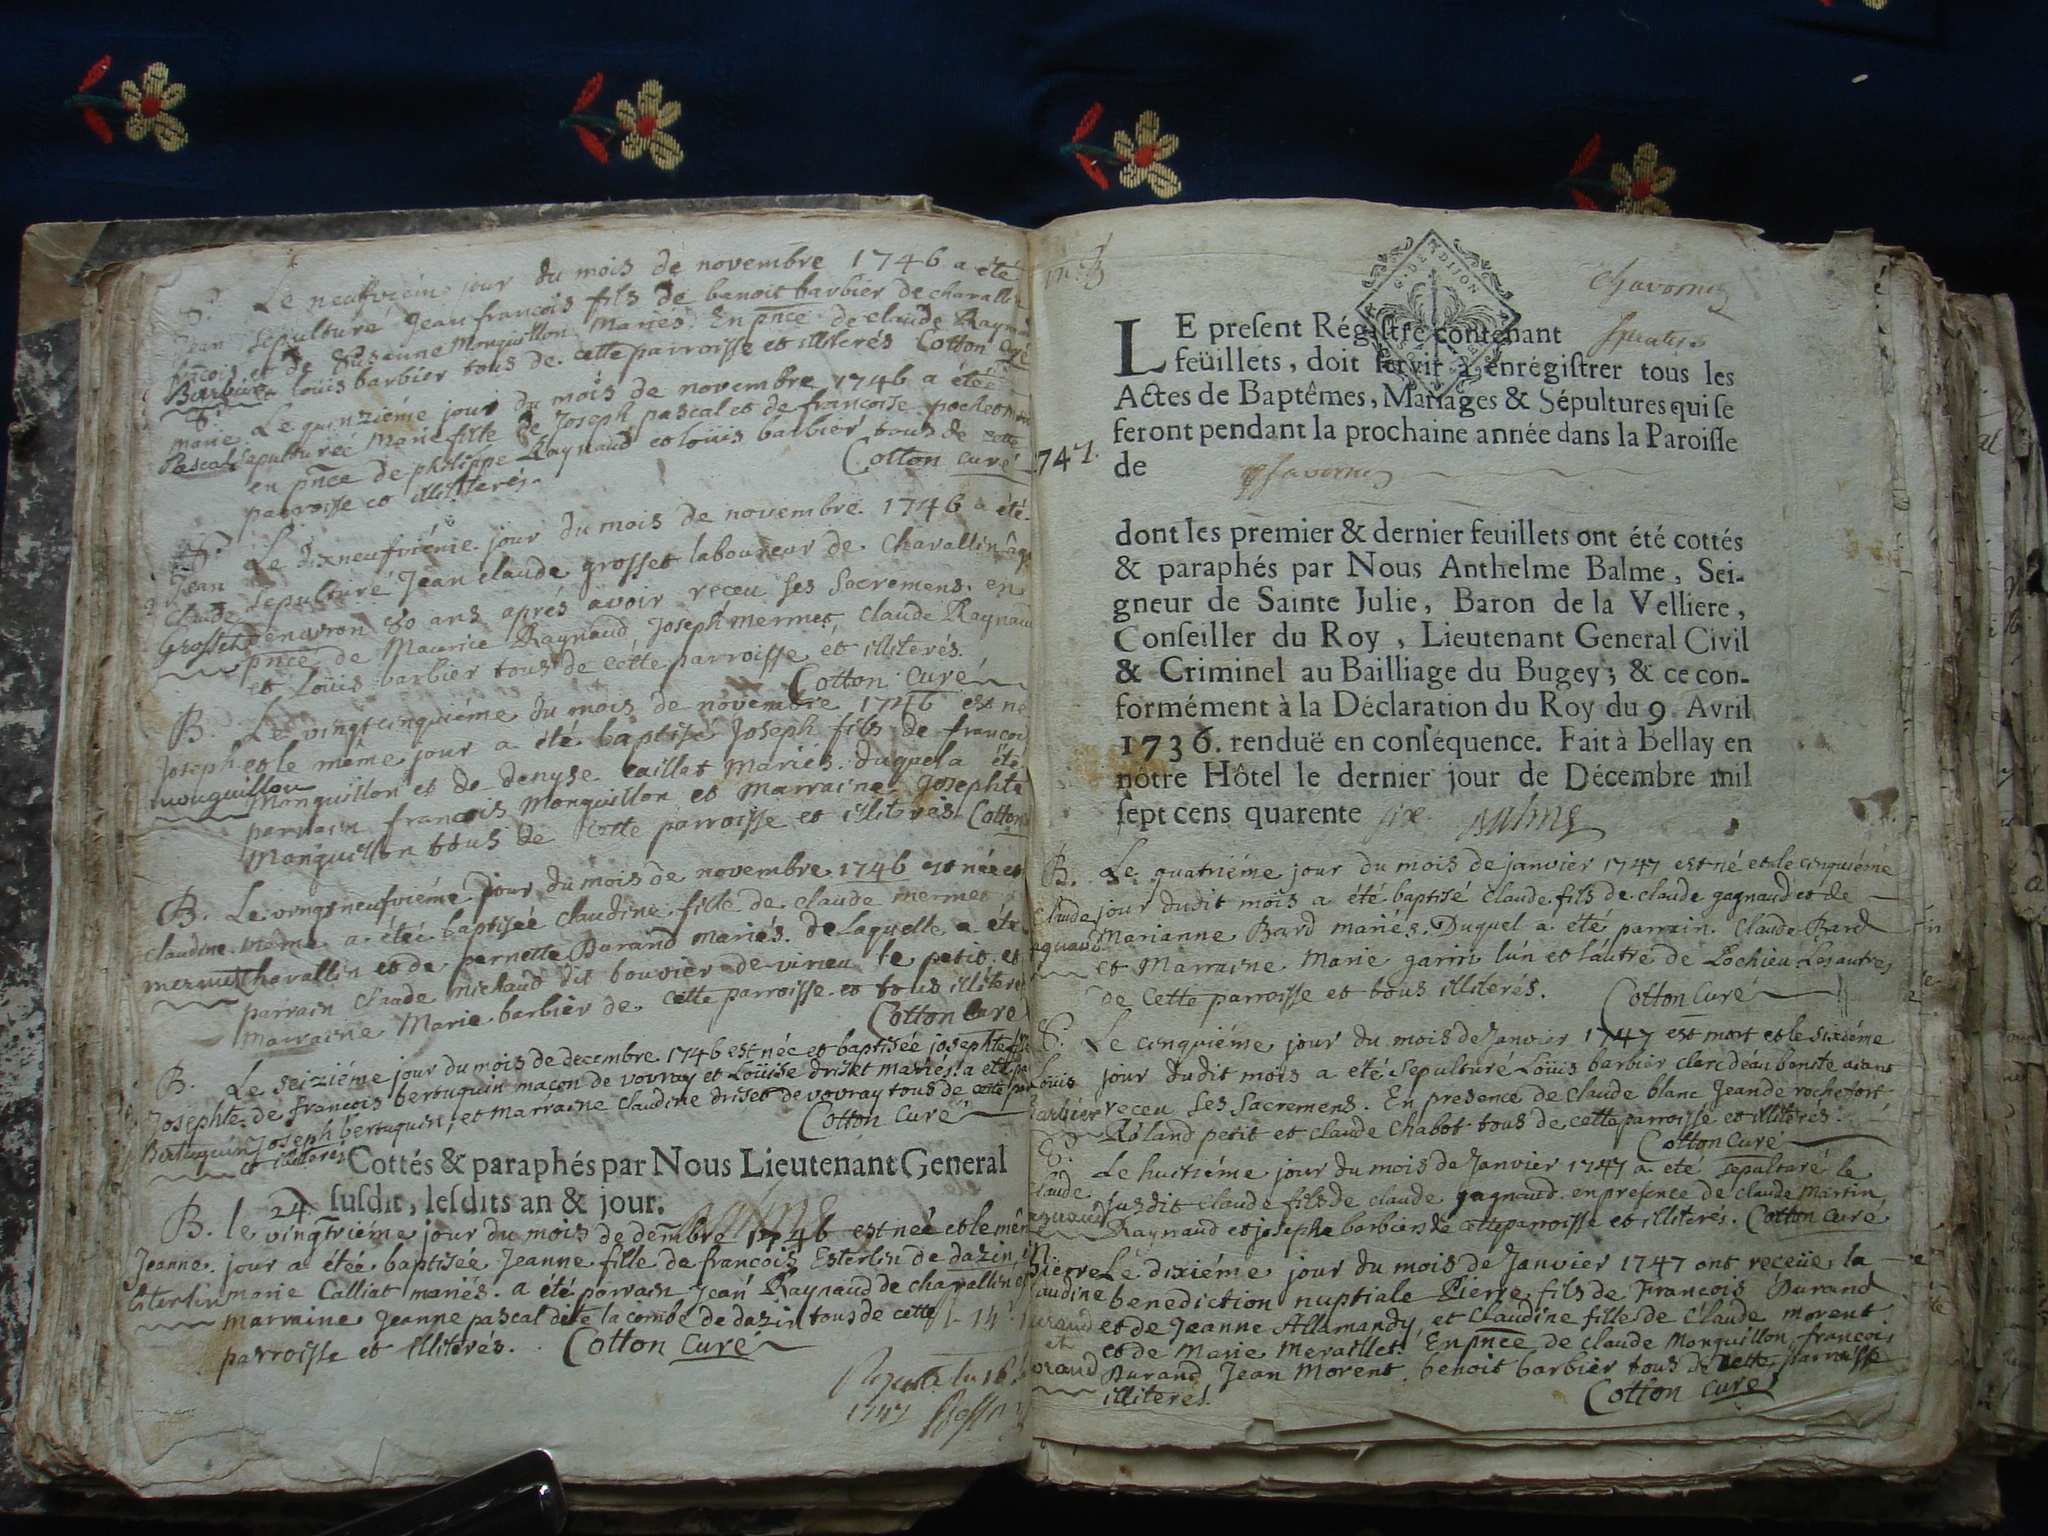 S. Le neufvième jour du mois de novembre 1746 a été
Jean sepulturé Jean françois fils de benoit barbier de chavallin
françois et de Susanne Monguillon Mariés. En pnce de claude Raynaud
Barbier et loüis barbier tous de cette parroisse et illiterés Cotton curé
S. Le quinziéme jour du mois de novembre 1746 a étéé
marie sepulturéé Marie fille de Joseph pascal et de françoise pochet
Pascal en pnce de philippe Raynaud et loüis barbier tous de cette
parroisse et illiterés. Cotton curé
S. Le dixneufviéme jour du mois de novembre 1746 a été
Jean sepulturé Jean claude grosset laboureur de Chavallin agé
claude d'environ 80 ans aprés avoir receu ses Sacremens. en
Grosset pnce de Maurice Raynaud, Joseph mermet, Claude Raynaud
et Loüis barbier tous de cette parroisse et illiterés.
Cotton Curé
B. Le vingtcinquiéme du mois de novembre 1746 est né
Joseph et le même jour a été baptisé Joseph fils de françois
monguillon Monguillon et de denyse caillat Mariés. duquel a été
parrain françois Monguillon et Marraine Josephte
Monguillon tous de cette parroisse et illiterés Cotton
B. Le vingtneufviéme jour du mois de novembre 1746 est née et
claudine même a étéé baptiséé claudine fille de claude mermet
mermet Chavallin et de pernette Durand mariés. de laquelle a été
parrain Claude michaud dit bouvier de virieu le petit et
marraine Marie barbier de cette parroisse et tous illiterés
Cotton Curé
B. Le seiziéme jour du mois de decembre 1746 est née et baptiséé josephte fille
Josephte de françois bertuquin maçon de vovray et Loüise driset mariés. a été
Bertuquin Joseph bertuquin, et Marraine claudine driset de vovray tous de cette
et illiterés Cotton Curé
Cottés & paraphés par Nous Lieutenant General
susdit, lesdits an & jour.
24
B. le vingtriéme jour du mois de dembre 1746 est née et le même
Jeanne jour a étéé baptiséé Jeanne fille de françois Esterlin de dazin,
Esterlin marie Calliat mariés. a été parrain Jean Raynaud de chavallin et
marraine Jeanne pascal dite la combe de dazin tous de cette
parroisse et illiterés. Cotton Curé
1747
chavornay
LE present Régistre contenant quatre
feüillets, doit servir à enrégistrer tous les
Actes de Baptêmes, Mariages & Sépultures qui se
feront pendant la prochaine année dans la Paroisse
de Chavornay
1747.
dont les premier & dernier feuillets ont été cottés
& paraphés par Nous Anthelme Balme, Sei-
gneur de Sainte Julie, Baron de la Velliere,
Conseiller du Roy, Lieutenant General Civil
& Criminel au Bailliage du Bugey; & ce con-
formément à la Déclaration du Roy du 9. Avril
1736. renduë en conséquence. Fait à Bellay en
nôtre Hôtel le dernier jour de Décembre mil
sept cens quarente six Balme
B. Le quatriéme jour du mois de janvier 1747 est né et le cinquiéme
Claude jour dudit mois a été baptisé Claude fils de claude gagnaud et de
gagnaud Marianne Bard mariés. Duquel a été parrain Claude Bard
et Marraine Marie garin lún et láutre de Lochieu Les autres
de Cette parroisse et tous illiterés. Cotton Curé
S. Le cinquiéme jour du mois de Janvier 1747 est mort et le sixiéme
Loüis jour dudit mois a été sepulturé Loüis barbier clerc déau benite aiant
barbier receu ses Sacremens. En presence de claude blanc Jean de rochefort
Roland petit et claude Chabot tous de cette parroisse et illiterés.
Cotton Curé
S. Le huitiéme jour du mois de Janvier 1747 a eté sepulturé le
claude susdit claude fils de claude gagnaud en presence de claude Martin
gagnaud Raynaud et joseph barbier de cette parroisse et illiterés. Cotton Curé
Pierre Le dixiéme jour du mois de Janvier 1747 ont receüe la
claudine benediction nuptiale Pierre fils de François Durand
Durand et de Jeanne Allamandy, et Claudine fille de Claude morent
et et de Marie Meraillet. En pnce de claude Monguillon, françois
Durand Jean Morent, benoit barbier tous de cette parroisse
illiterés. Cotton Curé